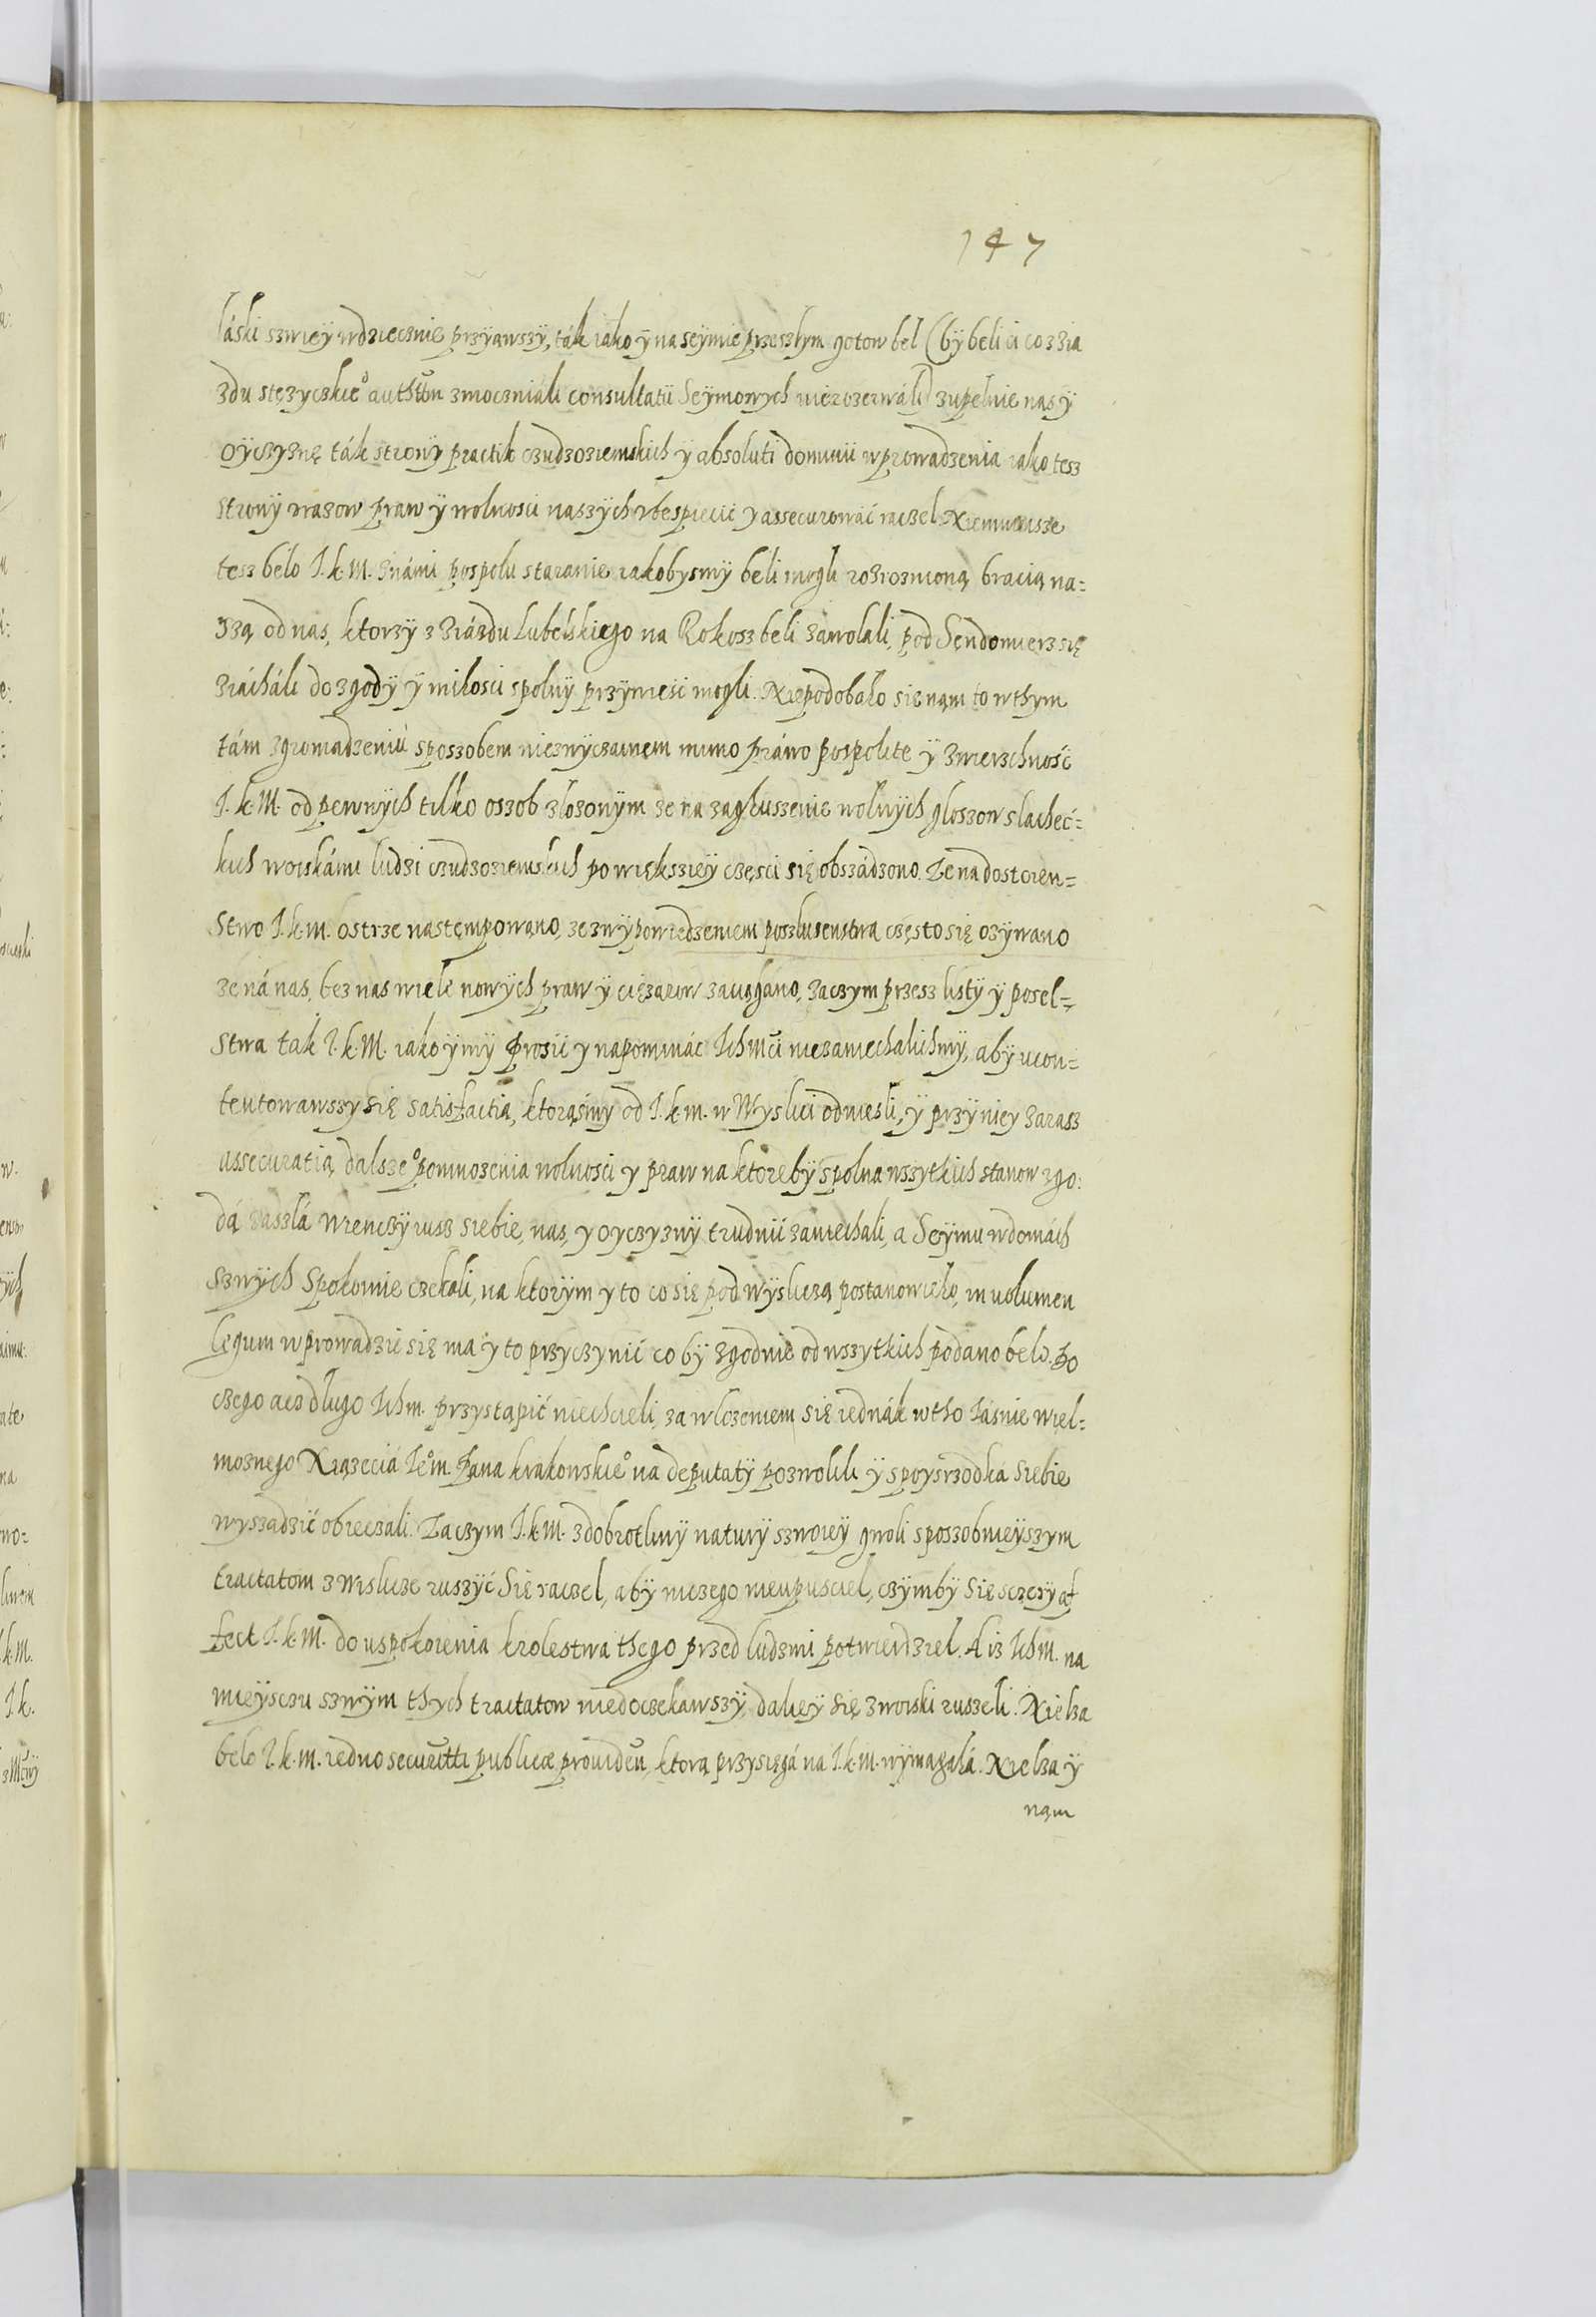 147
láski szwey wdziecznie przyąwszÿ, ták iako ÿ na seÿmie przeszłym gotow bel (bÿ beli ci co z zia
zdu stęzyczkieº authōn zmoczniáli consultatii Seÿmowych nierozerwáli) zupelnie nas ÿ
oÿczyznę ták stronÿ practik czudzoziemskich y absoluti dominii wprowadzenia iako tesz
stronÿ wrazow praw ÿ wolnosci naszÿch vbespiecic y assecurowáć raczel. Niemnieisze
tesz belo J. k. M. známi pospolu staranie iakobysmÿ beli mogli rozroznioną bracią na=
szą od nas, ktorzÿ z ziázdu Lubelskiego na Rokosz beli zawolali, pod Sendomierz się
ziácháli do zgodÿ ÿ milosci spolnÿ przÿwieść mogli. Niepodobało sie nąm to w thym
tám zgromadzeniu sposzobem niezwÿczainem mimo práwo pospolite ÿ zwierzchność
J. k. M. od pewnÿch tilko oszob złozonÿm ze na zagłuszenie wolnÿch gloszow slacheć=
kich woiskámi ludzi czudzoziemskich po większeÿ częsci się obszádzono. Ze na dostoien=
stwo J. k. M. ostrze nastęmpowąno, ze z wÿpowiedzeniem poszlusenstwa często się ozÿwano
ze ná nas, bez nas wiele nowÿch praw ÿ ciezarow zaciągáno, zaczym przesz listÿ ÿ posel=
stwa tak J. k. M. iako ÿ mÿ prosić y napominác Ichmci niezaniechalichmÿ, abÿ ucon=
tentowawszy się satisfactią, ktorąsmy od J. k. m. w Wyslici odniesli, ÿ przÿ niey zarasz
assecuratią dalszeº pomnozenia wolnosci y praw na ktorebÿ spolna wszytkich stanow zgo:
dá zaszlá wienczÿ iusz siebie, nas, y oyczyznÿ trudnić zaniechali, a Seÿmu w domách
szwÿch spokoinie czekali, na ktorÿm y to co się pod Wÿslicżą postanowiło, in uolumen
legum wprowadzić się ma ÿ to przÿczynić co bÿ zgodnie od wszytkich podano belo. Do
czego acz dlugo Ichm. przystąpić niechcieli, za wlozeniem się iednák w tho Jásnie Wiel=
moznego Xiązecia Jeºm. Pana krakowskieº na deputatÿ pozwolili ÿ spoysrzodka siebie
wyszadzić obieczali. Zaczym J. k. M. z dobrotliwÿ naturÿ szwoieÿ gwoli sposzobnieÿszym
tractatom z Wislicze ruszÿć się raczel, abÿ niczego nieupusciel, czÿmbÿ się sczerÿ af
fect J. k. M. do uspokoienia krolestwa thego przed ludzmi potwierdziel. A iz Ichm. na
mieÿsczu szwÿm thych tractatow niedoczekawszÿ, daleÿ się z woiski ruszeli. Nielza
belo J. k. m. iedno securitti publicæ prouideri, ktorą przysięgá na J. k. M. wÿmagałá. Nielza ÿ
nąm